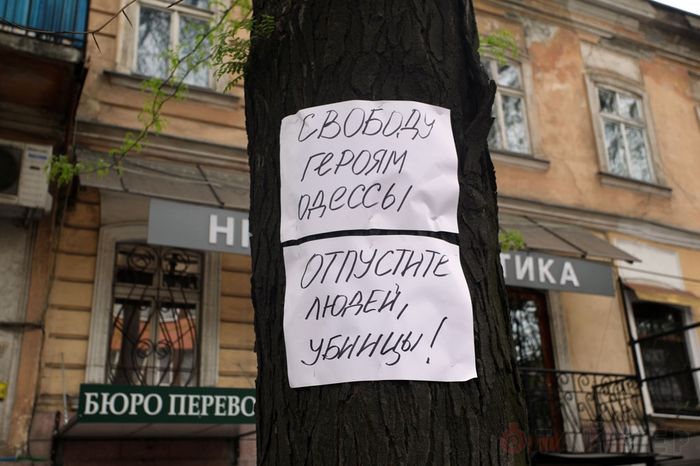 СВОБОДУ
ГЕРОЯМ
ОДЕССЫ
ОТПУСТИТЕ
ЛЮДЕЙ,
УБИЙЦЫ!
НН
ТИКА
БЮРО ПЕРЕВО